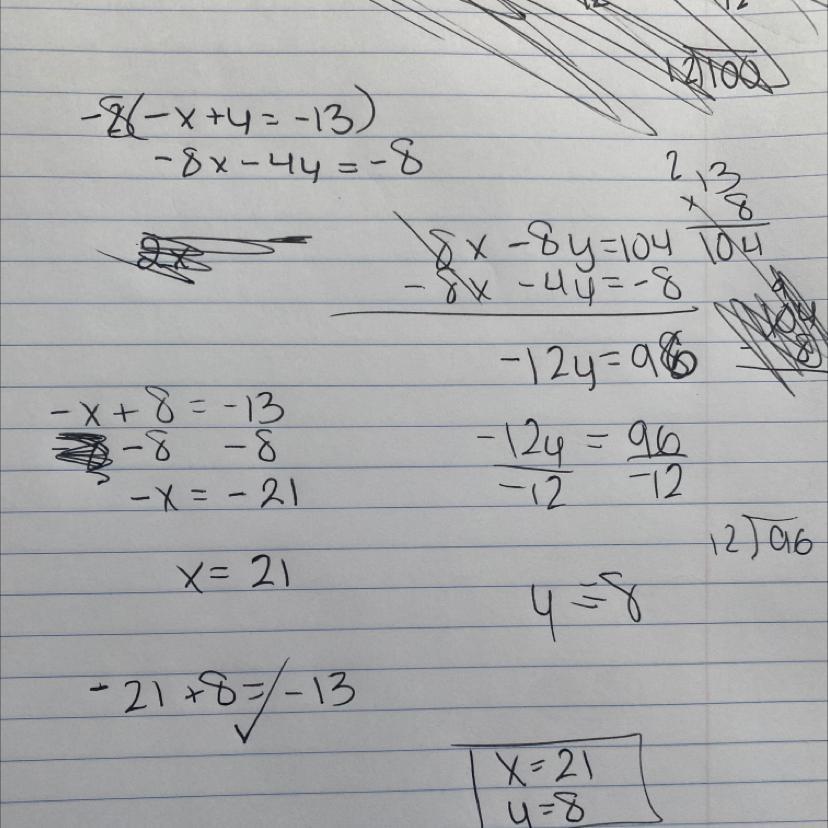 12)100
-8(-x+y=-13)
-8x-4y=-8
2 13
x 8
104
2x
8x-8y=104
-8x-4y=-8
-12y=96
104
8
-x+8=-13
-8 -8
-x=-21
-12y = 96
-12 -12
12)96
x=21
y=8
-21+8=-13
x=21
y=8